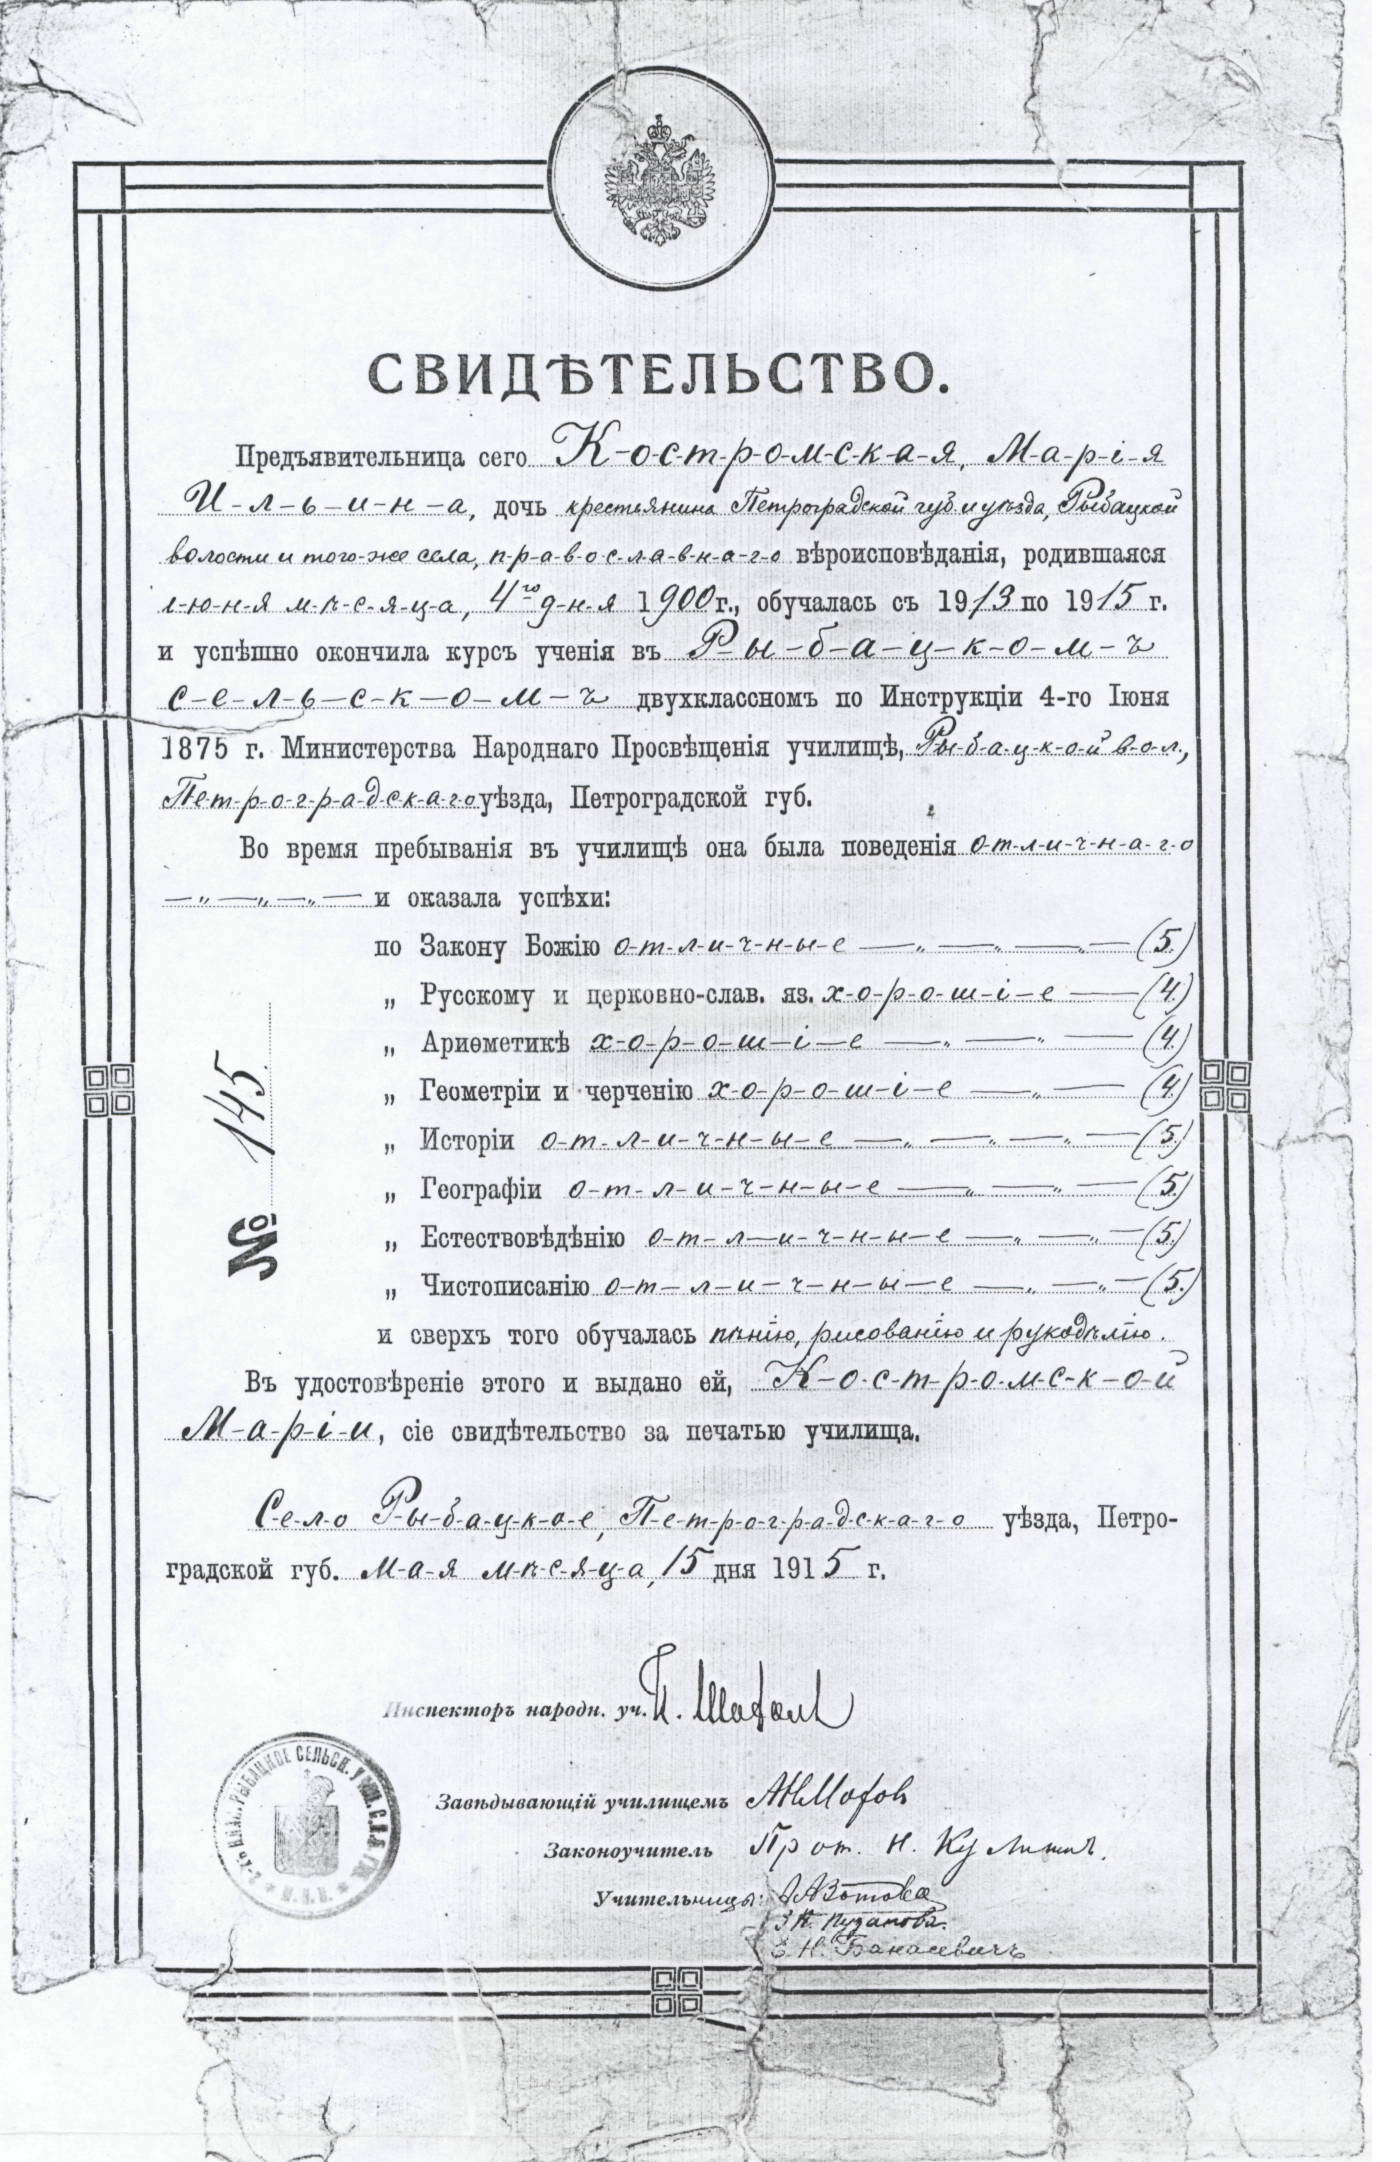 СВИДѢТЕЛЬСТВО.
Предъявительница сего К-о-с-т-р-о-м-с-к-а-я, М-а-р-і-я
И-л-ь-и-н-а, дочь крестьянина Петроградской губ. и уѣзда, Рыбацкой
волости и того-же села, п-р-а-в-о-с-л-а-в-н-а-г-о вѣроисповѣданія, родившаяся
І-ю-н-я м-ѣ-с-я-ц-а, 4го д-н-я 1900 г., обучалась съ 1913 по 1915 г.
и успѣшно окончила курсъ ученія въ Р-ы-б-а-ц-к-о-м-ъ
с-е-л-ь-с-к-о-м-ъ двухклассномъ по Инструкціи 4-го Іюня
1875 г. Министерства Народнаго Просвѣщенія училищѣ, Р-ы-б-а-ц-к-о-й в-о-л.,
П-е-т-р-о-г-р-а-д-с-к-а-г-о уѣзда, Петроградской губ.
Во время пребыванія въ училищѣ она была поведенія о-т-л-и-ч-н-а-г-о
— „ — „ — „ — и оказала успѣхи:
по Закону Божію о-т-л-и-ч-н-ы-е — „ — „ — „ — (5.)
„ Русскому и церковно-слав. яз. х-о-р-о-ш-і-е — (4.)
„ Ариѳметикѣ х-о-р-о-ш-і-е — „ — „ — (4.)
„ Геометріи и черченію х-о-р-о-ш-і-е — „ — (4.)
„ Исторіи о-т-л-и-ч-н-ы-е — „ — „ — „ — (5.)
„ Географіи о-т-л-и-ч-н-ы-е — „ — „ — (5.)
„ Естествовѣдѣнію о-т-л-и-ч-н-ы-е — „ — „ — (5.)
„ Чистописанію о-т-л-и-ч-н-ы-е — „ — „ — (5.)
и сверхъ того обучалась пѣнію, рисованію и рукодѣлію.
№ 145.
Въ удостовѣреніе этого и выдано ей, К-о-с-т-р-о-м-с-к-о-й
М-а-р-і-и, сіе свидѣтельство за печатью училища.
С-е-л-о Р-ы-б-а-ц-к-о-е, П-е-т-р-о-г-р-а-д-с-к-а-г-о уѣзда, Петро-
градской губ. м-а-я м-ѣ-с-я-ц-а, 15 дня 1915 г.
Инспекторъ народн. уч.
Завѣдывающій училищемъ
Законоучитель Прот. Н.
Учительницы: Зотова
З. Н. Пузанова.
Е. Н. Банасевичъ
РЫБАЦКОЕ СЕЛЬСК. УЧИЛ.